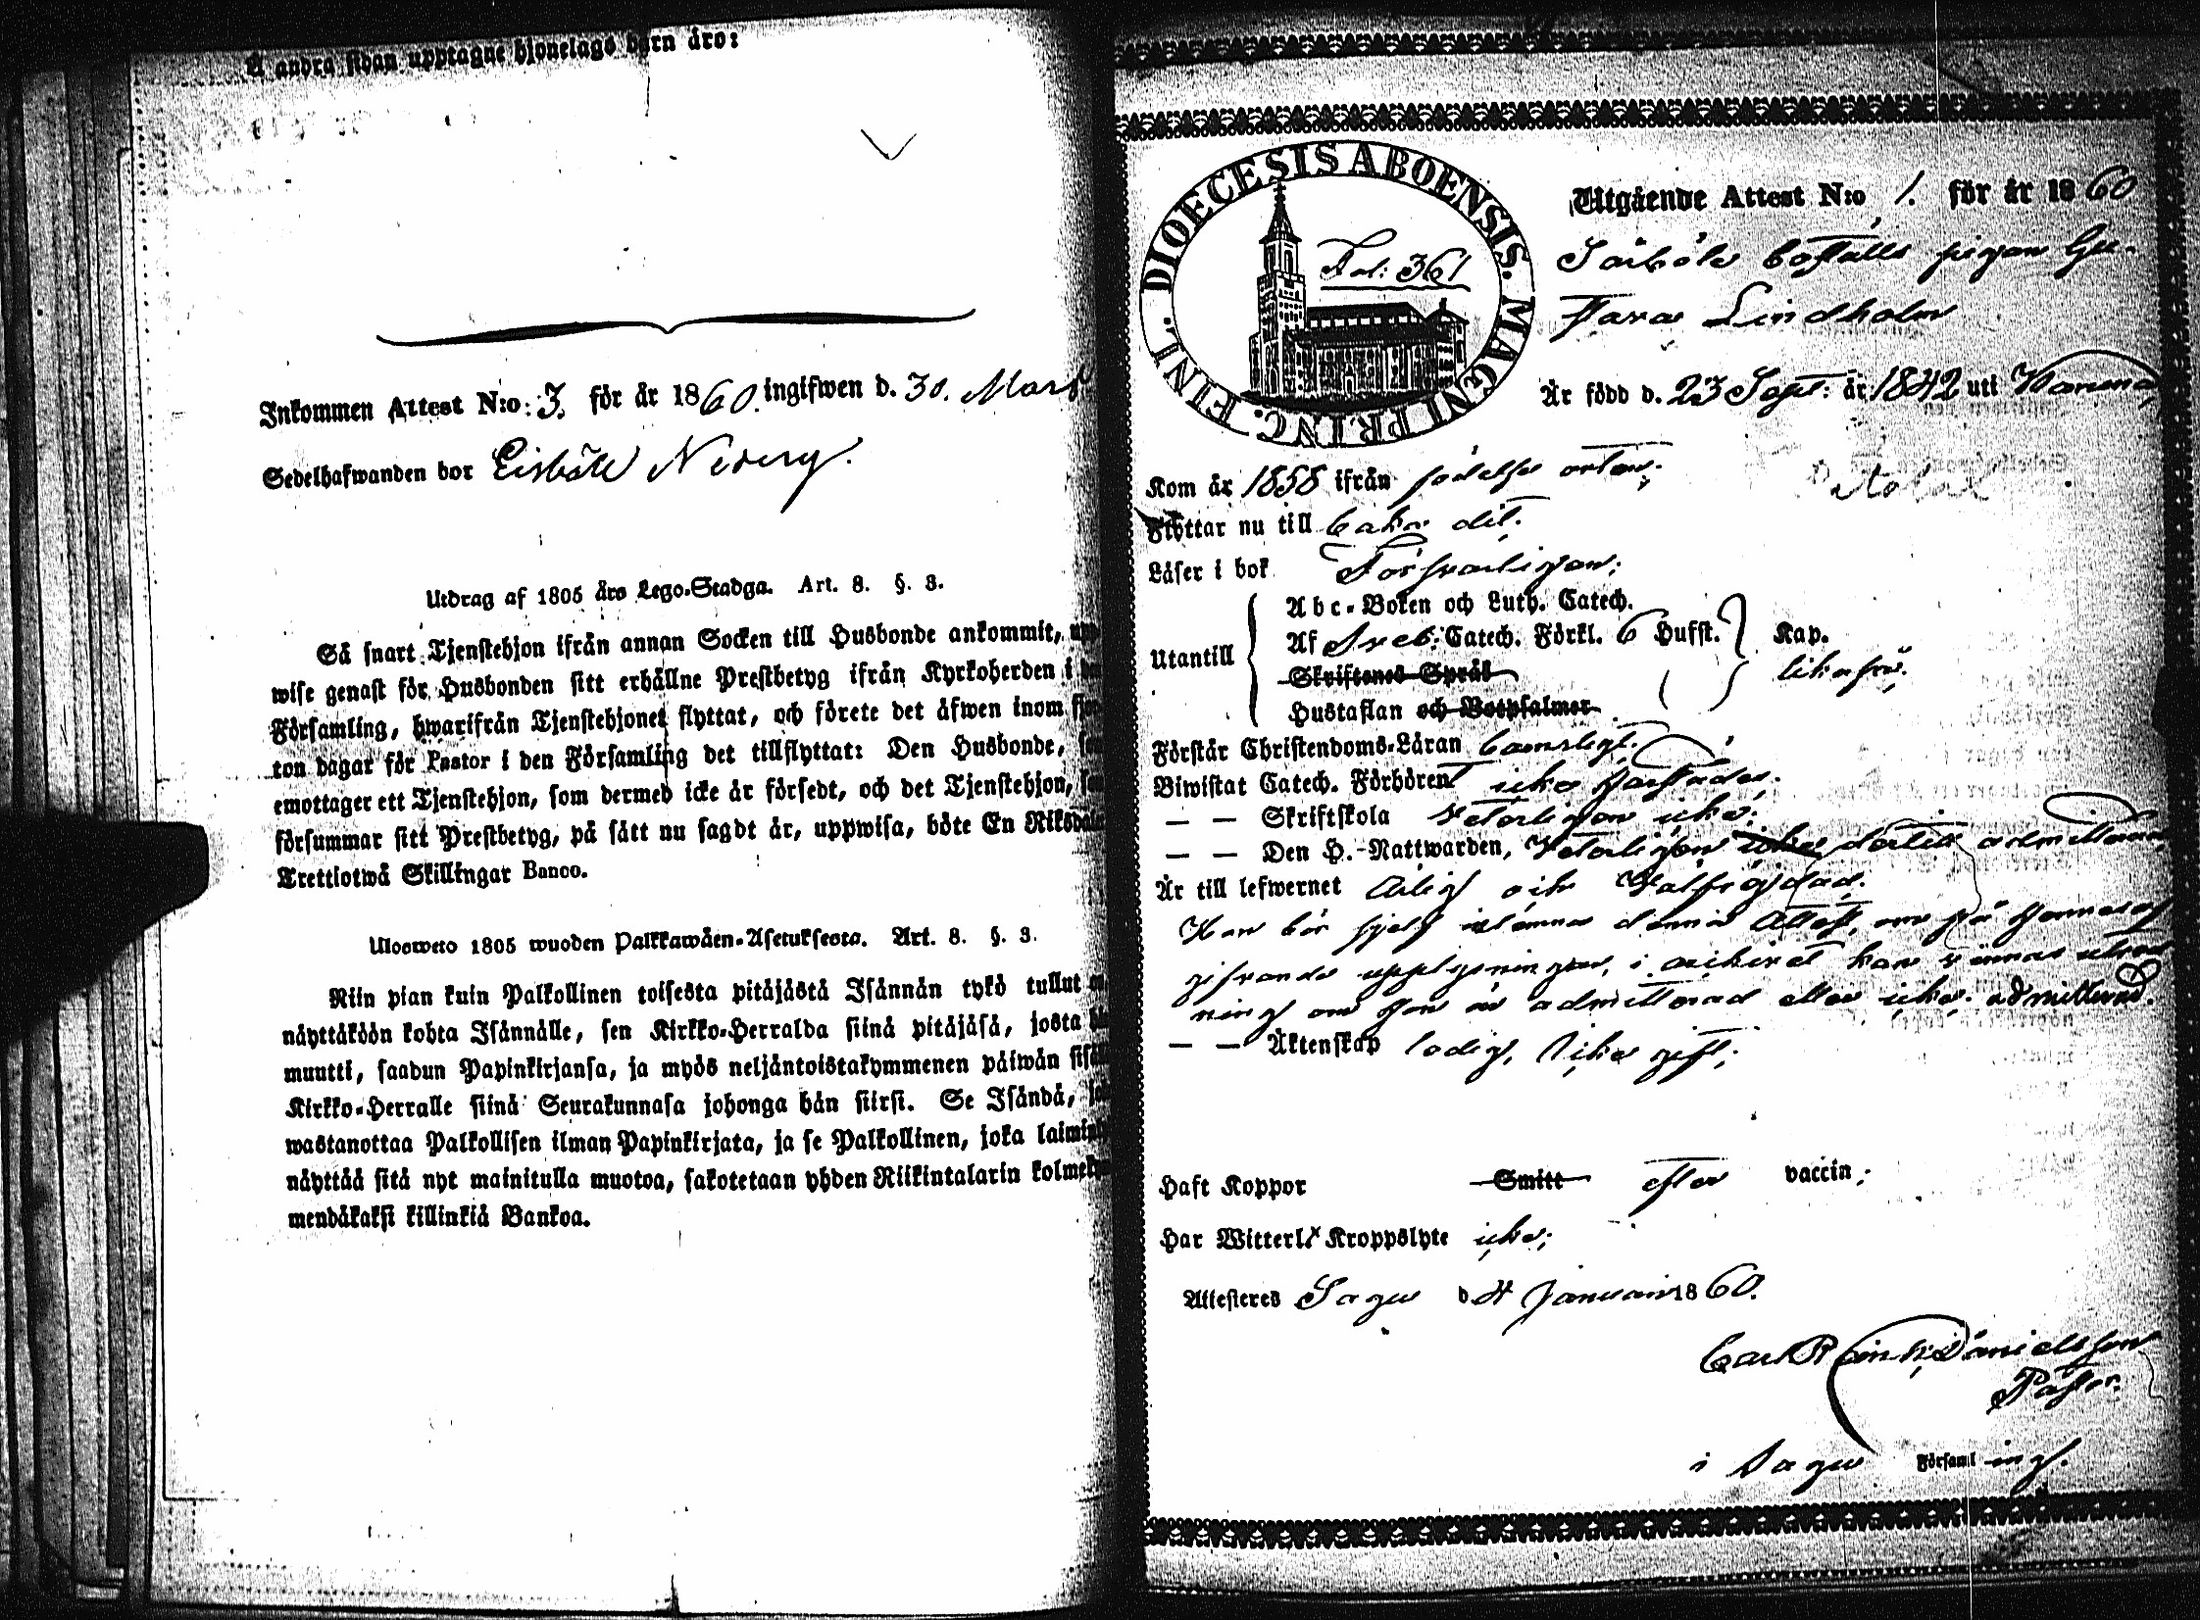 Å andra sidan upptagne hjonelags barn äro:
Inkommen Attest N:o: 3. för år 1860. ingifwen d. 30. Mars
Sedelhafwanden bor
Utdrag af 1805 års Lego-Stadga. Art. 8. §. 3.
Så snart Tjenstehjon ifrån annan Socken till Husbonde ankommit, upp
wise genast för Husbonden sitt erhållne Prestbetyg ifrån Kyrkoherden i den
Församling, hwarifrån Tjenstehjonet flyttat, och förete det äfwen inom fjor
ton dagar för Pastor i den Församling det tillflyttat: Den Husbonde, som
emottager ett Tjenstehjon, som dermed icke är försedt, och det Tjenstehjon, som
försummar sitt Prestbetyg, på sätt nu sagdt är, uppwisa, böte En Riksdaler
Trettiotwå Skillingar Banco.
Ulosweto 1805 wuoden Palkkawäen-Asetuksesta. Art. 8. §. 3.
Niin pian kuin Palkollinen toisesta pitäjästä Isännän tykö tullut on,
näyttäköön kohta Isännälle, sen Kirkko-Herralda siinä pitäjäsä, josta hän
muutti, saadun Papinkirjansa, ja myös neljäntoistakymmenen päiwän sisällä
Kirkko-Herralle siinä Seurakunnasa johonga hän siirsi. Se Isändä, joka
wastanottaa Palkollisen ilman Papinkirjata, ja se Palkollinen, joka laiminlyö
näyttää sitä nyt mainitulla muotoa, sakotetaan yhden Riikintalarin kolmeky
mendäkaksi killinkiä Bankoa.
DIOECESIS ABOENSIS. MAGNI PRINC. FINL.
Fol: 361
Utgående Attest N:o 1. för år 1860
boställs pigan Gu-
stava Lindholm
Är född d. 23 Sept: år 1842 uti
Kom år 1858 ifrån födelse orten;
Flyttar nu till baka dit.
Läser i bok Försvarligen;
Utantill
Abc-Boken och Luth. Catech.
Af Sveb: Catech. Förkl. 6 Hufst. Kap.
Skriftenes Språk likaså.
Hustaflan och Botpsalmer
Förstår Christendoms-Läran barnsligt.
Biwistat Catech. Förhören icke
— — Skriftskola Veterligen icke;
— — Den H. Nattwarden, Veterligen icke dertill admitterad,
Är till lefwernet Ärlig och Välfrägdad.
Hon bör sjelf inlämna denna Attest, om på hennes
gifvande upplysningar, i archivet kan vinnas
ning om hon är admitterad eller icke. admitterad.
— — Äktenskap ledig, icke gift;
Haft Koppor Smitt efter vaccin;
Har Witterl. Kroppslyte icke;
Attesteres Sagu d. 4 Januari 1860.
Danielsson
Pastor.
i Sagu Församling.